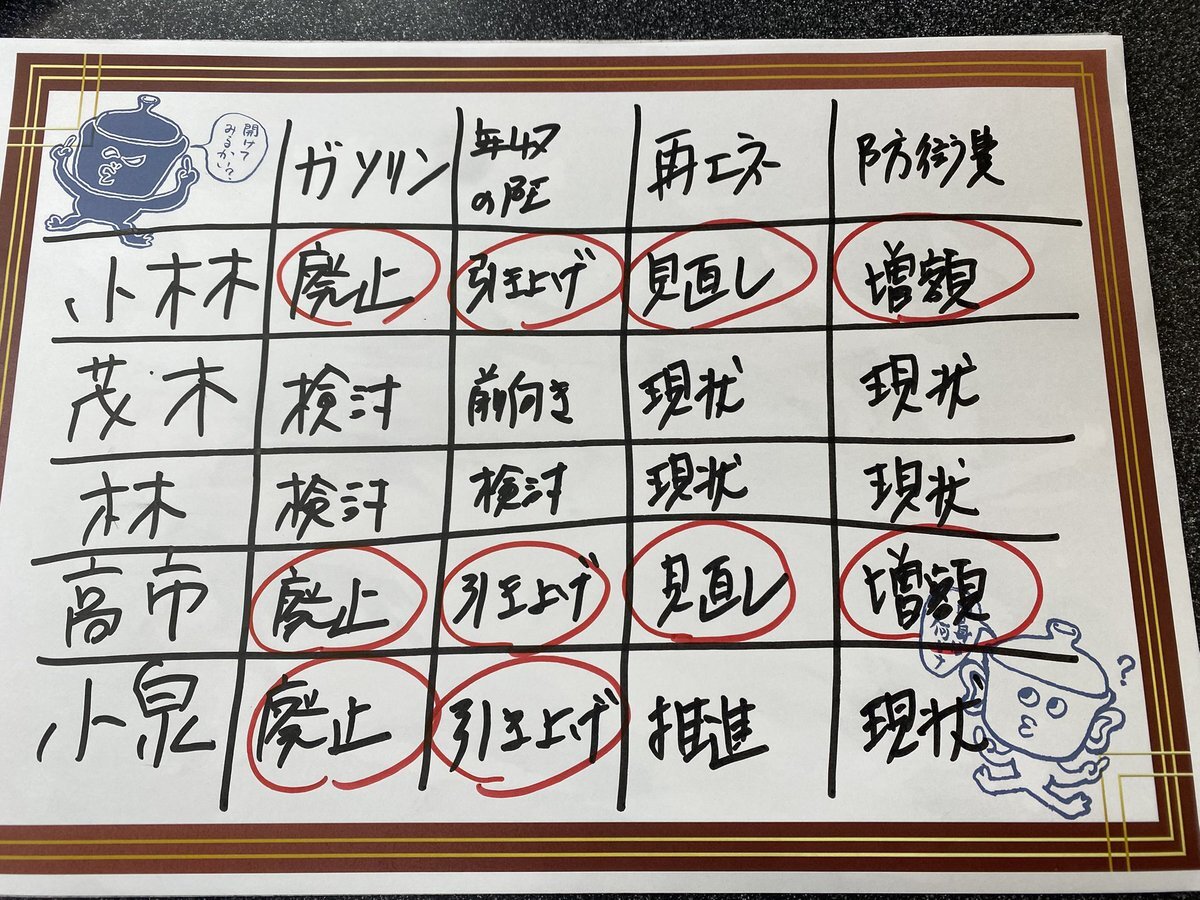 開けて
みるかい?
ガソリン 年収の壁 再エネ 防衛費
小林 廃止 引き上げ 見直し 増額
茂木 検討 前向き 現状 現状
林 検討 検討 現状 現状
高市 廃止 引き上げ 見直し 増額
小泉 廃止 引き上げ 推進 現状
?